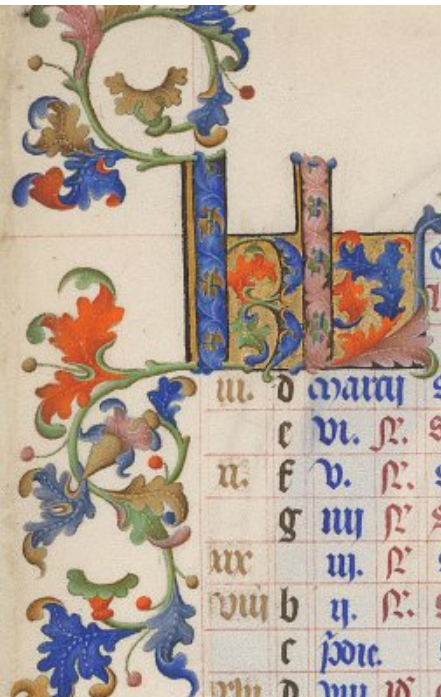 KL
iii. d marcij
e vi. N.
xi. f v. N.
g iiij N
xix iij. N
viii b ij. N.
c p̃die.
d viii